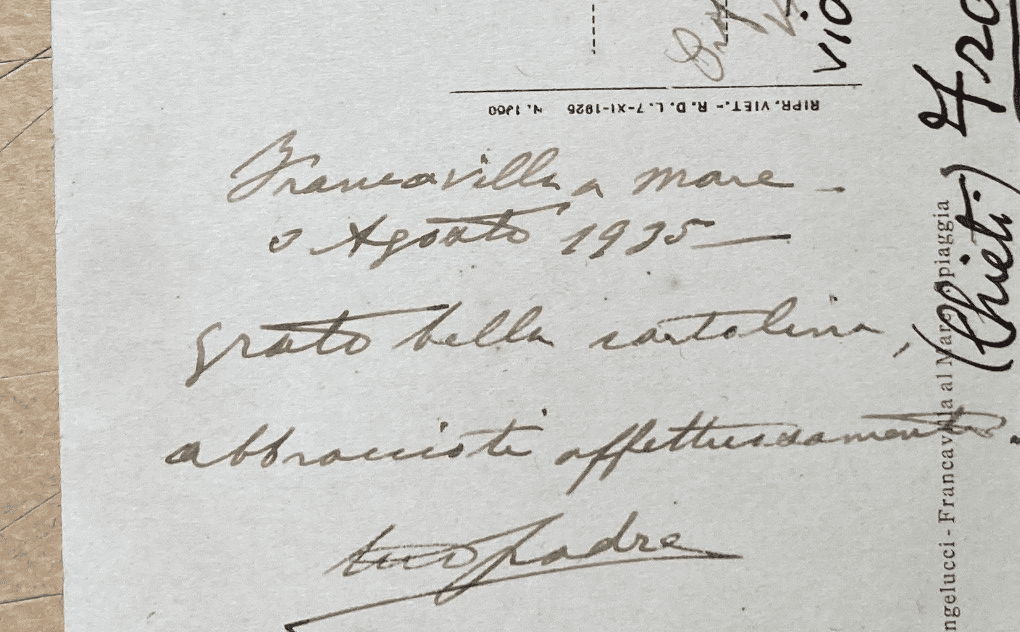 RIPR. VIET. - R. D. L. 7-XI-1926 N.
Francavilla a mare
Agosto 1935
grato bella cartolina,
abbraccioti affettuosamente.
tuo padre
(Chieti)
ngelucci - Francavilla al Mare piaggia